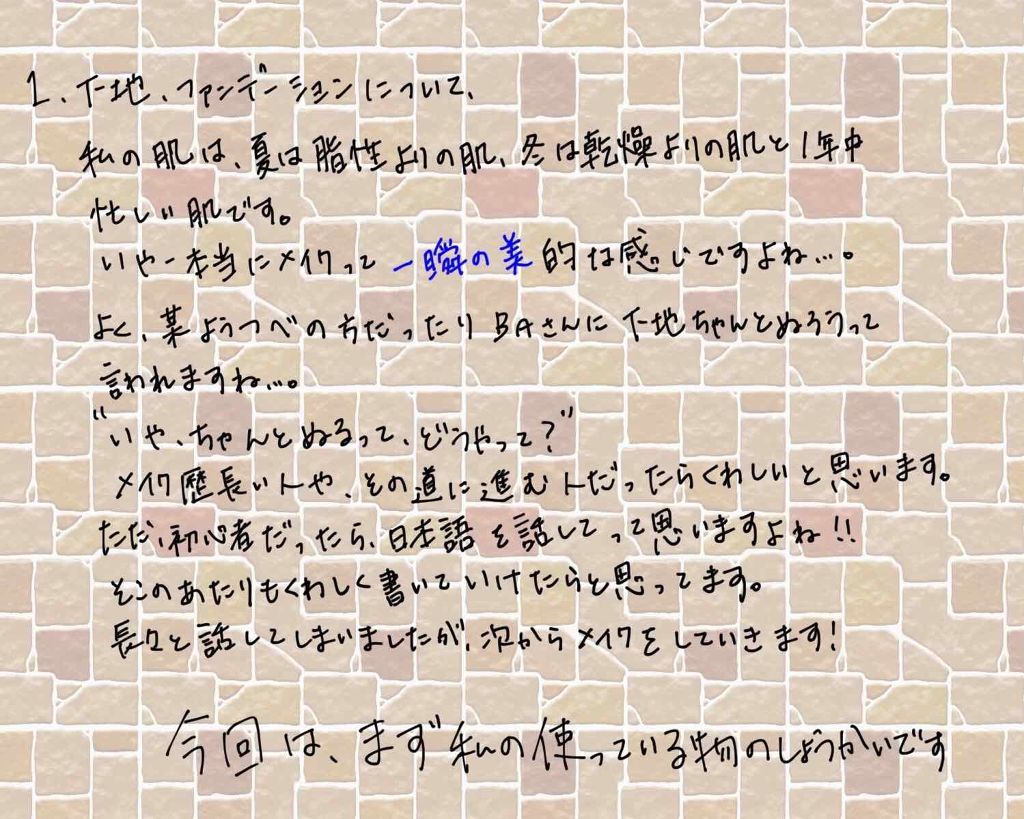 1、下地、ファンデーションについて、
私の肌は、夏は脂性よりの肌、冬は乾燥よりの肌と1年中
忙しい肌です。
いやー本当にメイクって一瞬の美的な感じですよね...。
よく、某ようつべの方だったりBAさんに下地ちゃんとぬろうって
言われますね...。
"いや、ちゃんとぬるって、どうやって?"
メイク歴長い人や、その道に進む人だったらくわしいと思います。
ただ、初心者だったら、日本語を話してって思いますよね!!
そこのあたりもくわしく書いていけたらと思ってます。
長々と話してしまいましたが、次からメイクをしていきます!
今回は、まず私の使っている物のしょうかいです